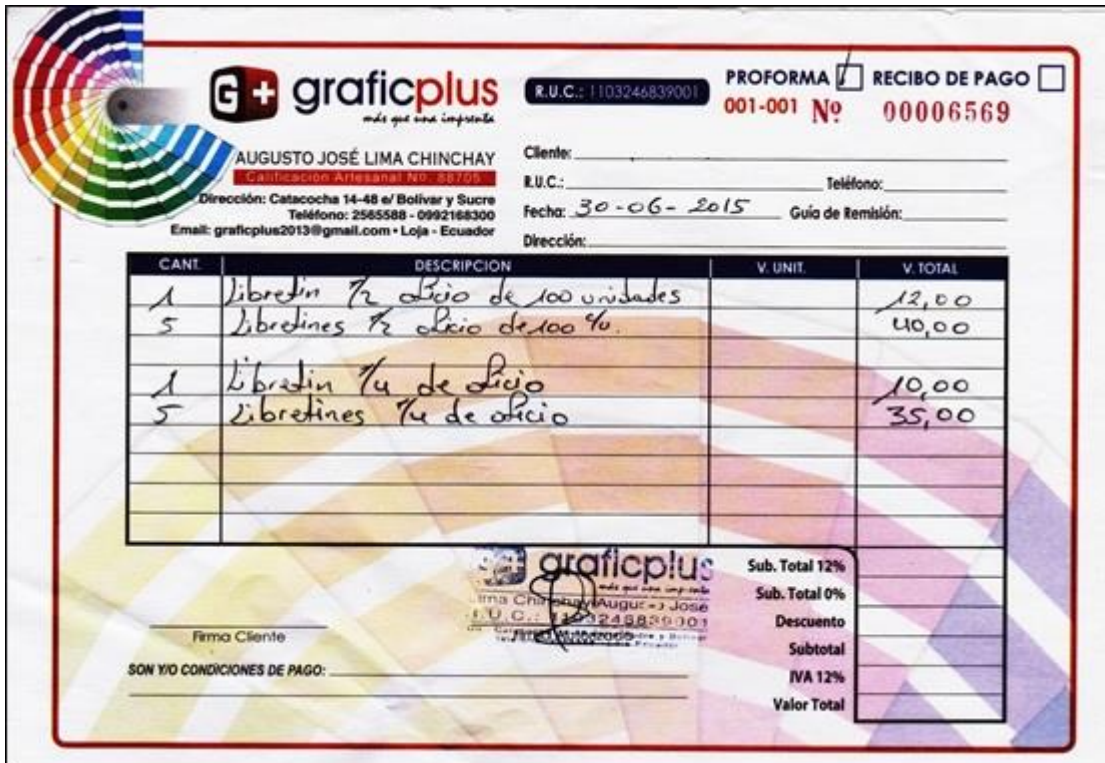 G+ graficplus
más que una imprenta
R.U.C.: 1103246839001
PROFORMA RECIBO DE PAGO
001-001 Nº 00006569
AUGUSTO JOSÉ LIMA CHINCHAY
Calificación Artesanal Nº. 88705
Dirección: Catacocha 14-48 e/ Bolívar y Sucre
Teléfono: 2565588 - 0992168300
Email: graficplus2013@gmail.com • Loja - Ecuador
Cliente:
R.U.C.: Teléfono:
Fecha: 30-06-2015 Guía de Remisión:
Dirección:
CANT. DESCRIPCION V. UNIT. V. TOTAL
1 Libretin 1/2 oficio de 100 unidades 12,00
5 Libretines 1/2 oficio de 100 %. 40,00
1 Libretin 1/4 de oficio 10,00
5 Libretines 1/4 de oficio 35,00
graficplus
más que una imprenta
Lima Chinchay Augusto José
R.U.C.: 1103246839001
Firma Cliente
SON Y/O CONDICIONES DE PAGO:
Sub. Total 12%
Sub. Total 0%
Descuento
Subtotal
IVA 12%
Valor Total